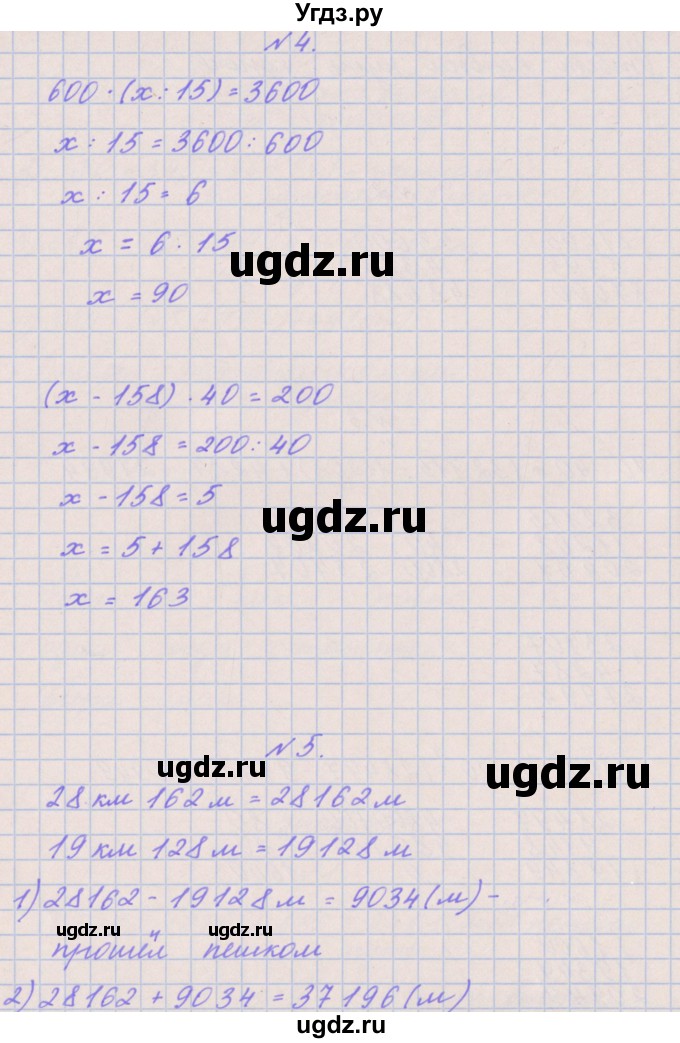 Угдз.ру
№4.
600 · (x : 15) = 3600
x : 15 = 3600 : 600
x : 15 = 6
x = 6 · 15
ugdz.ru
x = 90
(x - 158) · 40 = 200
x - 158 = 200 : 40
x - 158 = 5
ugdz.ru
x = 5 + 158
x = 163
№5.
ugdz.ru
ugdz.ru
28 км 162 м = 28162 м
19 км 128 м = 19128 м
1) 28162 - 19128 м = 9034 (м) -
ugdz.ru ugdz.ru
прошёл пешком
2) 28162 + 9034 = 37196 (м)
ugdz.ru